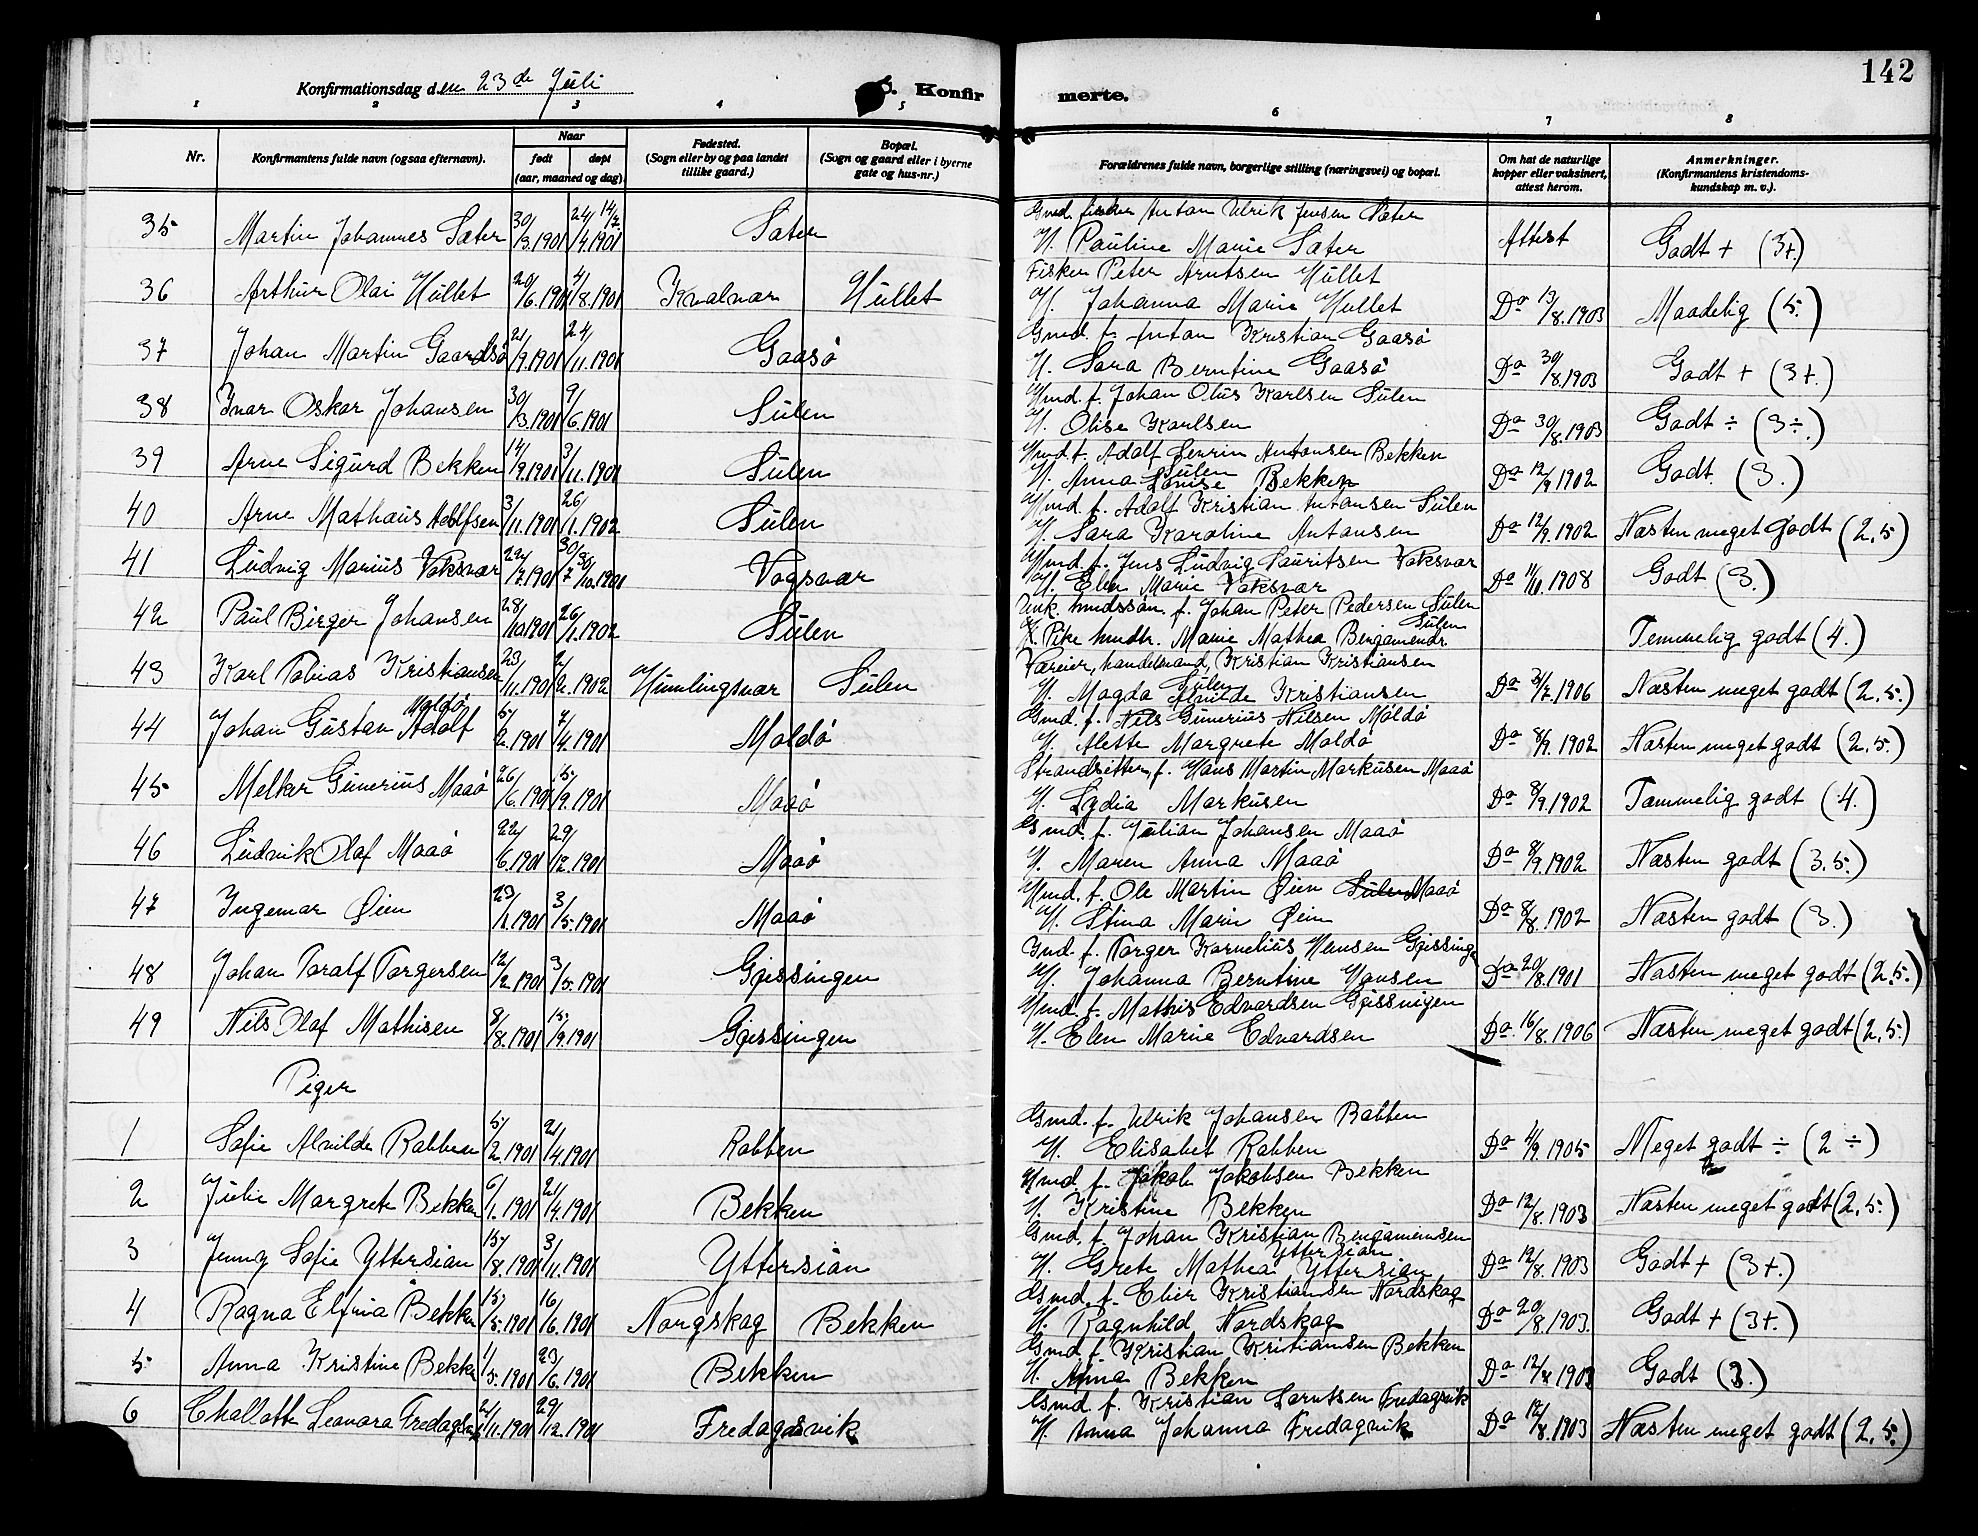 142
Konfirmationsdag den 23de Juli
Konfirmerte.
1 2 3 4 5 6 7 8
Nr. Konfirmantens fulde navn (ogsaa efternavn). Naar født døpt (aar, maaned og dag). Fødested. (Sogn eller by og paa landet tillike gaard.) Bopæl. (Sogn og gaard eller i byerne gate og hus-nr.) Forældrenes fulde navn, borgerlige stilling (næringsvei) og bopæl. Om hat de naturlige kopper eller vaksinert, attest herom. Anmerkninger. (Konfirmantens kristendomskundskap m. v.).
Gmd. fisker Anton Ulrik Jensen Sæter
35 Martin Johannes Sæter 30/3.1901 24/4.1901 14/7 Sæter H. Pauline Marie Sæter Attest Godt + (3+)
Fisker Peter Arntsen Hullet
36 Arthur Olai Hullet 20/6.1901 4/8.1901 Kvalvær Hullet H. Johanna Marie Hullet Do 13/8.1903 Maadelig (5.)
Gmd. f. Anton Kristian Gaasø
37 Johan Martin Gaasø 21/9.1901 24/11.1901 Gaasø H. Sara Berntine Gaasø Do 30/8.1903 Godt + (3+.)
Hmd. f. Johan Olus Karlsen Sulen
38 Ivar Oskar Johansen 30/3.1901 9/6.1901 Sulen H. Olise Karlsen Do 30/8.1903 Godt ÷ (3÷.)
Hmd. f. Adolf Antonsen Bekken
39 Arne Sigurd Bekken 14/9.1901 3/11.1901 Sulen H. Anna Louise Bekken Sulen Do 12/9 1902 Godt. (3.)
Hmd. f. Adolf Kristian Antonsen Sulen
40 Arne Mathæus Adolfsen 3/11.1901 26/1.1902 Sulen H. Sara Karoline Antonsen Do 12/9.1902 Næsten meget godt (2,5)
Hmd. f. Jens Ludvig Lauritsen Vaksvær
41 Ludvig Marius Vaksvær 22/7.1901 30/10.1901 Vogsvær H. Elen Marie Vaksvær Do 11/10.1908 Godt (3.)
Unk. f. Johan Peter Pedersen Sulen
42 Paul Birger Johansen 28/10.1901 26/1.1902 Sulen Pike Marie Mathea Sulen Temmelig godt (4.)
handelsmand, Kristian Kristiansen
43 Karl Tobias Kristiansen 23/11.1901 2/2.1902 Humlingsvær Sulen H. Magda Alvilde Kristiansen Sulen Do 3/7.1906 Næsten meget godt (2,5.)
Gmd. f. Nils Gunerius Nilsen Moldø
44 Johan Gustav Adolf Moldø 5/2.1901 7/4.1901 Moldø H. Alette Margrete Moldø Do 8/9.1902 Næsten meget godt (2,5.)
Strandsitter, f. Hans Martin Markusen Maaø
45 Melker Gunerius Maaø 26/6.1901 15/9.1901 Maaø H. Lydia Markusen Do 8/9.1902 Temmelig godt (4.)
Gmd. f. Julian Johansen Maaø
46 Ludvik Olaf Maaø 22/6.1901 29/12.1901 Maaø H. Maren Anna Maaø Do 8/9.1902 Næsten godt (3,5.)
Hmd. f. Ole Martin Øien Sulen Maaø
47 Ingemar Øien 23/1.1901 3/5.1901 Maaø H. Stina Marie Øien Do 8/8.1902 Næsten godt (3.)
Gmd. f. Torger Kornelius Hansen Gjessingen
48 Johan Toralf Torgersen 12/2.1901 3/5.1901 Gjessingen H. Johanna Berntine Hansen Do 20/8.1901 Næsten meget godt (2,5.)
Hmd. f. Mathis Edvardsen Gjessingen
49 Nils Olaf Mathisen 8/8.1901 15/9.1901 Gjessingen H. Elen Marie Edvardsen Do 16/8.1906 Næsten meget godt (2,5.)
Piger
Gmd. f. Ulrik Johansen Rabben
1 Sofie Alvilde Rabben 5/2.1901 21/4.1901 Rabben H. Elisabet Rabben Do 4/9.1905 Meget godt ÷ (2 ÷)
Hmd. f. Jakob Jakobsen Bekken
2 Julie Margrete Bekken 6/1.1901 21/4.1901 Bekken H. Kristine Bekken Do 12/8.1903 Næsten meget godt (2,5.)
Gmd. f. Johan Kristian Benjaminsen
3 Jenny Sofie Yttersian 15/8.1901 3/11.1901 Yttersian H. Grete Mathea Yttersian Yttersian Do 12/8.1903 Godt + (3+.)
Gmd. f. Elier Kristiansen Nordskag
4 Ragna Elfina Bekken 15/5.1901 16/6.1901 Norgskag Bekken H. Ragnhild Nordskag Do 20/8.1903. Godt + (3+.)
Gmd. f. Kristian Kristiansen Bekken
5 Anna Kristine Bekken 1/5.1901 23/6.1901 Bekken H. Anna Bekken Do 12/8 1903 Godt (3.)
Gmd. f. Kristian Fredagsvik
6 Challotte Leonora Fredagsvik 2/11.1901 29/12.1901 Fredagsvik H. Anna Johanna Fredagsvik Do 12/8.1903 Næsten meget godt (2,5.)